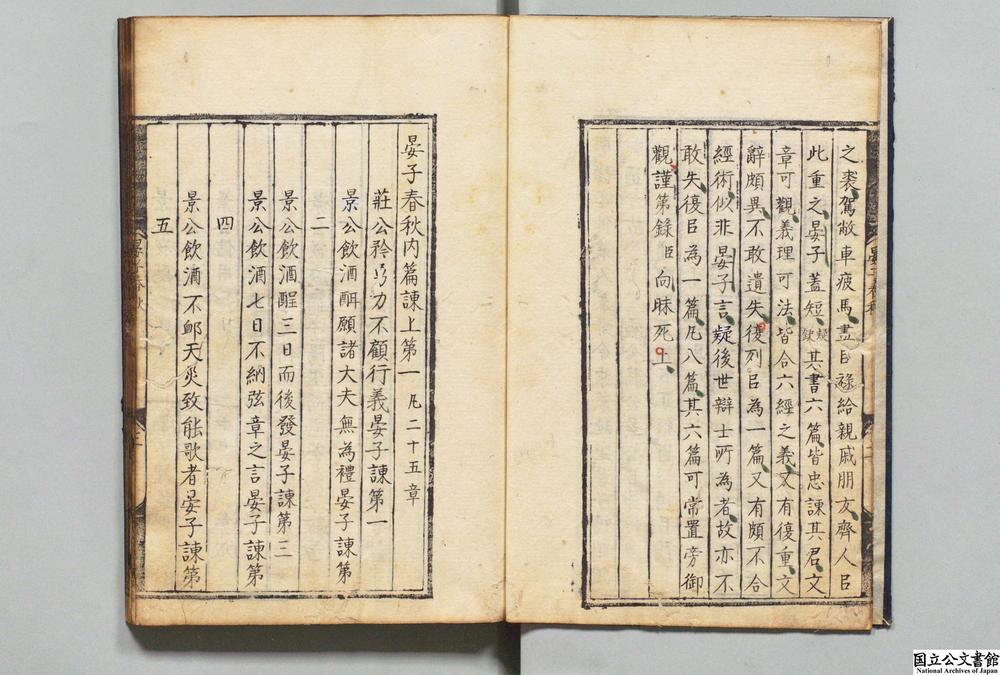 之裘駕敝車疲馬盡㠯祿給親戚朋友齊人㠯
此重之晏子蓋短疑缺其書六篇皆忠諫其君文
章可觀義理可法皆合六經之義又有復重文
辭頗異不敢遺失復列㠯為一篇又有頗不合
經術似非晏子言疑後世辯士所為者故亦不
敢失復㠯為一篇凡八篇其六篇可常置旁御
觀謹第錄臣向昧死上
晏子春秋內篇諫上第一 凡二十五章
莊公矜勇力不顧行義晏子諫第一
景公飲酒酣願諸大夫無為禮晏子諫第
二
景公飲酒酲三日而後發晏子諫第三
景公飲酒七日不納弦章之言晏子諫第
四
景公飲酒不卹天災致能歌者晏子諫第
五
国立公文書館
National Archives of Japan